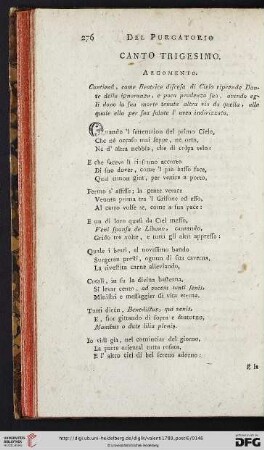 276 DEL PURGATORIO
CANTO TRIGESIMO.
ARGOMENTO.
Contiensi, come Beatrice discesa di Cielo riprende Dan-
te della ignoranza, e poca prudenza sua, avendo eg-
li dopo la sua morte tenuta altra via da quella, alla
quale ella per sua salute l' avea indirizzato.
Quando 'l settentrion del primo Cielo,
Che nè occaso mai seppe, nè orto,
Nè d' altra nebbia, che di colpa velo:
E che faceva lì ciascuno accorto
Di suo dover, come 'l più basso face,
Qual timon gira, per venire a porto,
Fermo s' affisse; la gente verace
Venuta prima tra 'l Griffone ed esso,
Al carro volse se, come a sua pace:
E un di loro quasi da Ciel messo,
Veni sponsa de Libano, cantando,
Gridò tre volte, e tutti gli altri appresso:
Quale i beati, al novissimo bando
Surgeran presti, ognun di sua caverna,
La rivestita carne alleviando,
Cotali, in su la divina basterna,
Si levar cento, ad vocem tanti senis,
Ministri e messaggier di vita eterna.
Tutti dicén, Benedictus, qui venis,
E, fior gittando di sopra e dintorno,
Manibus o date lilia plenis.
Io vidi già, nel cominciar del giorno,
La parte oriental tutta rosata,
E l' altro ciel di bel sereno adorno:
http://digi.ub.uni-heidelberg.de/diglit/valenti1788_pster6/0146
UNIVERSITÄTS-BIBLIOTHEK HEIDELBERG
© Universitätsbibliothek Heidelberg
gefördert durch die
DFG